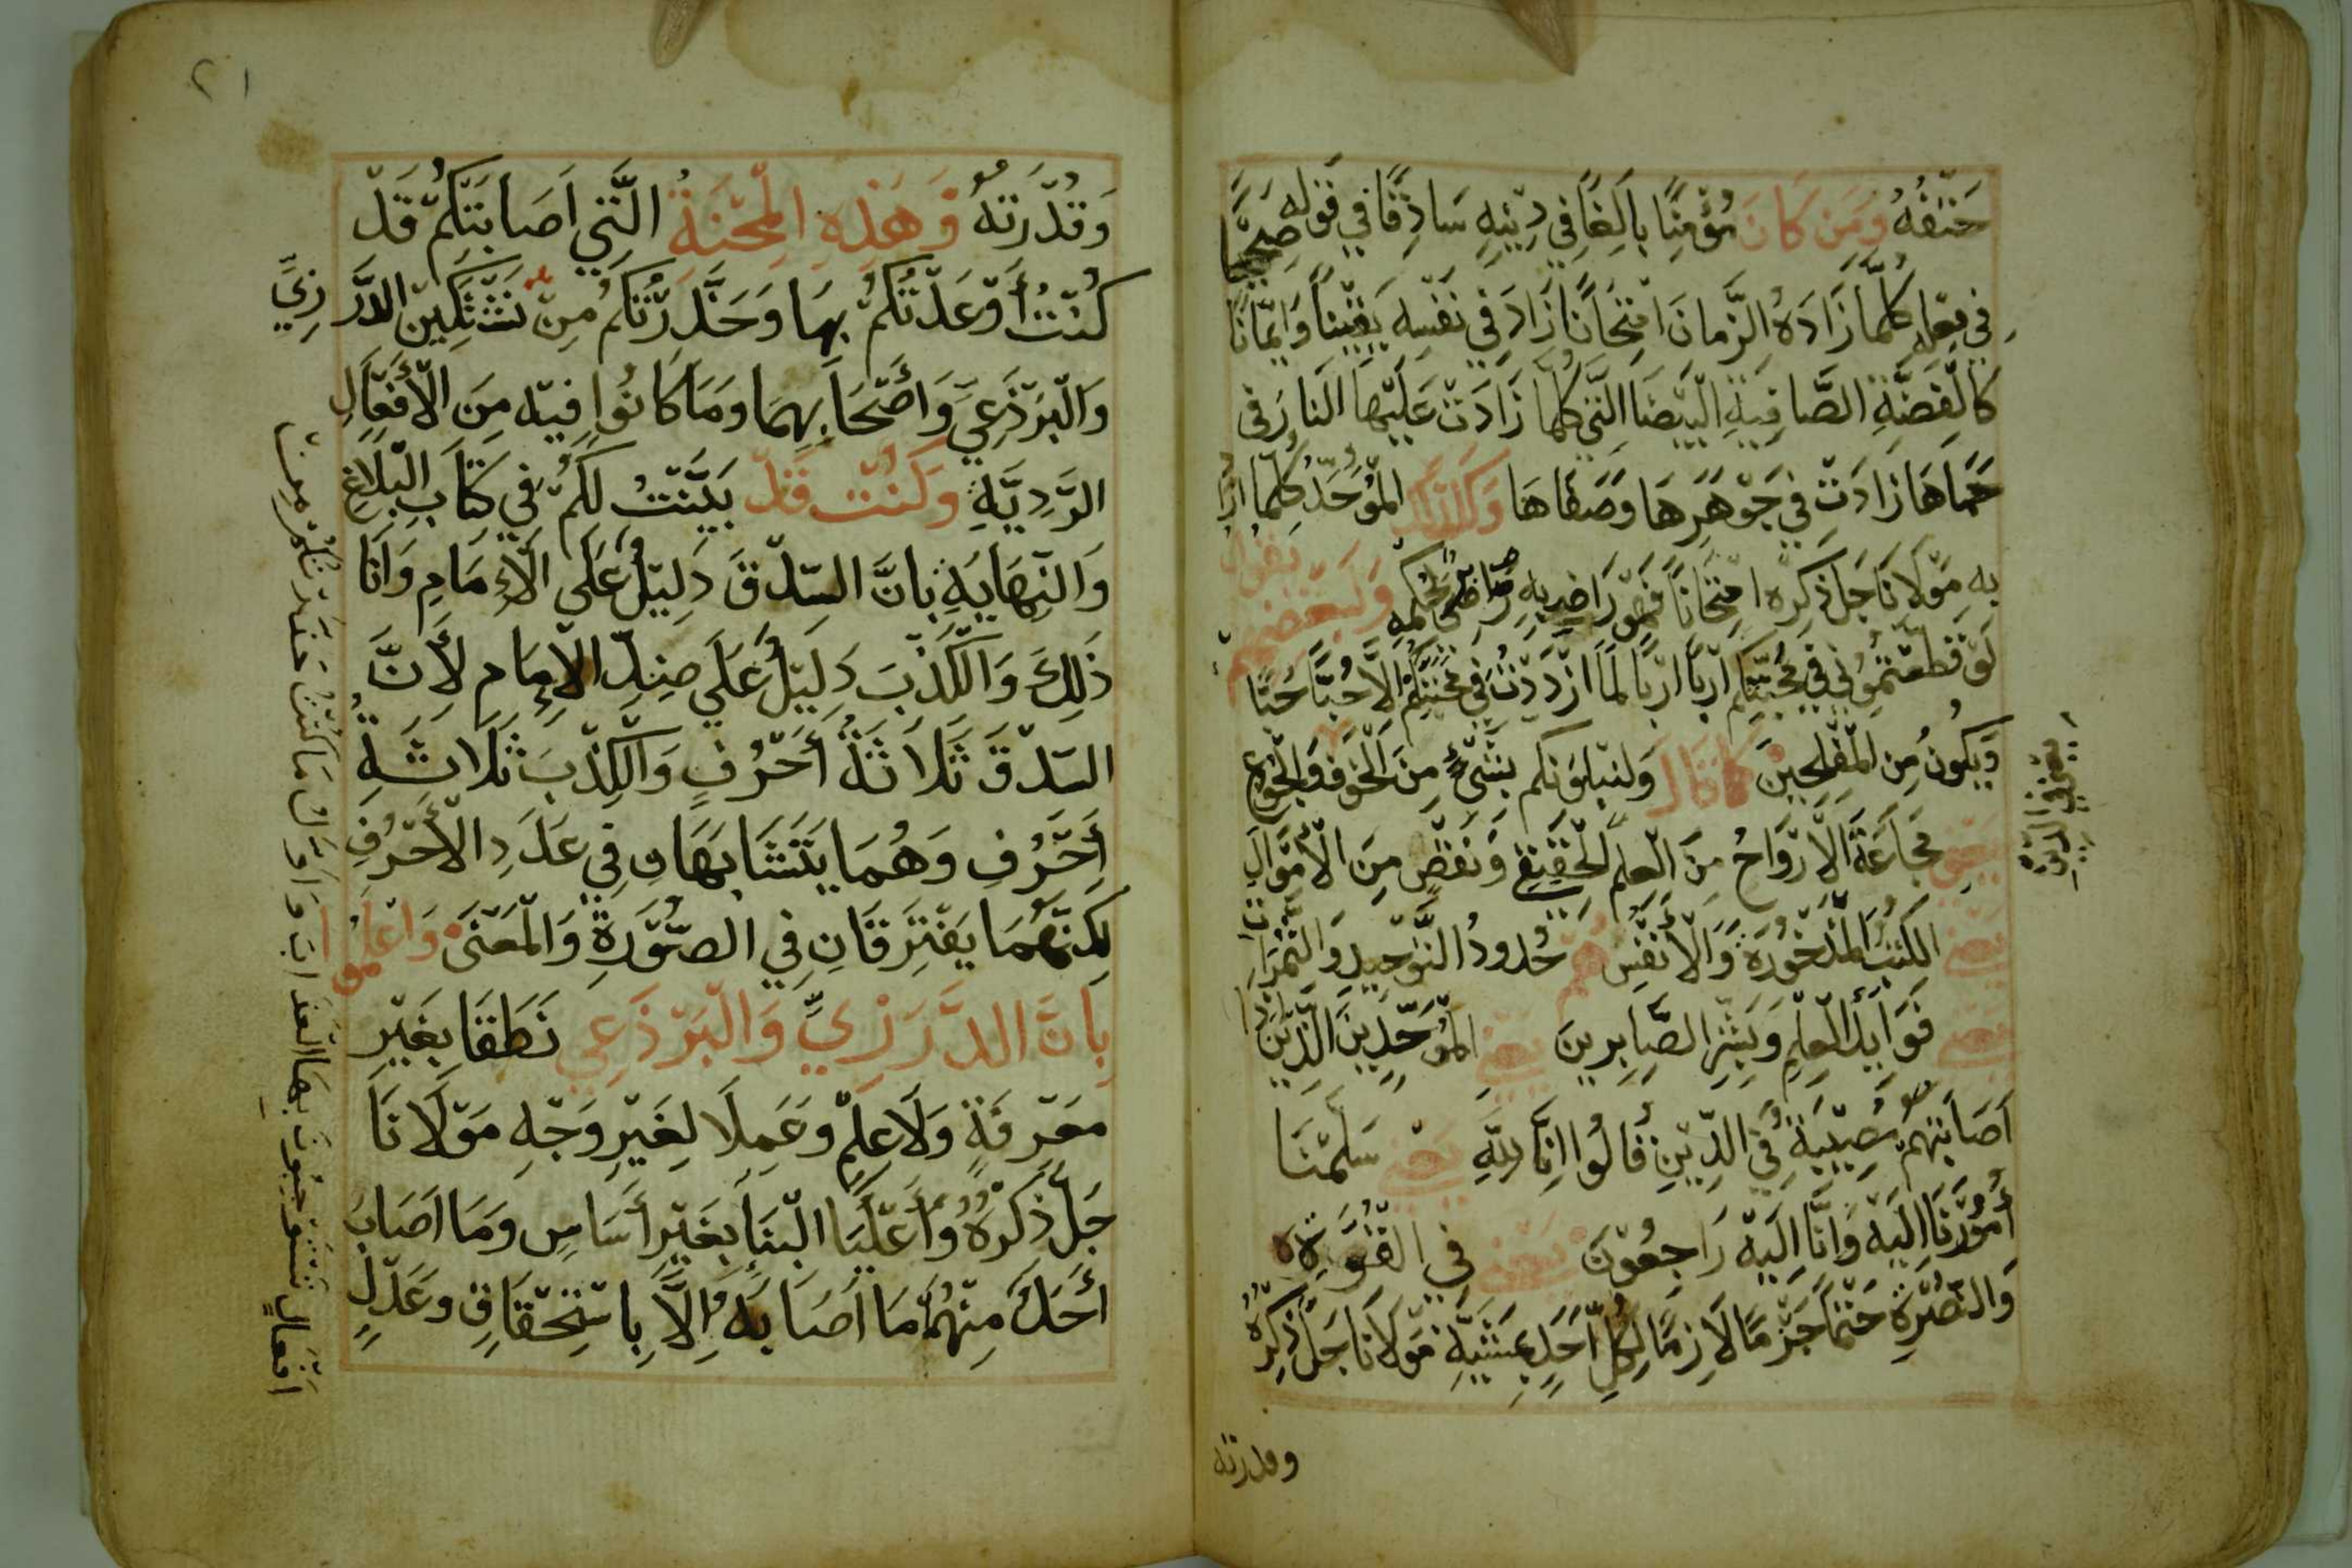 حَتْفُهُ وَمَن كَانَ مُؤْمِنًا بِالِغًا فِي دِيْنِهِ سَادِقًا فِي قَوْلِهِ صَحِيْحًا
فِي فِعْلِهِ كُلَّمَا زَادَهُ الزَّمَانَ امْتِحَانًا زَادَ فِي نَفْسِهِ يَقِيْنًا وَإِيْمَانًا
كَالْفِضَّةِ الصَّافِيَةِ الْبَيْضَا الَّتِي كُلَّمَا زَادَتْ عَلَيْهَا النَارَ فِي
حَمَاهَا زَادَتْ فِي جَوْهَرِهَا وَصَفَاهَا وَكَذَلِكَ الْمُوَحِّدُ كُلَّمَا ازا
بِهِ مَوْلَانَا جَلَ ذِكْرِهِ امْتِحَانًا فَهُوَ رَاضِيٍ بِهِ لِحُكْمِهِ وَلِبَعْضِهِم يقول
لَوْ قَطَعْتُمُوْنِي فِي مَحَبَّتِكُم اَرْبًا اَرْبًا لَمَا ازْدَدْتُ فِي مَحَبَّتِكُمْ اِلَّا حُبًّا حُبًّا
وَيَكُونُ مِنَ الْمُفْلِحِيْنَ كَمَا قَالَ وَلَنَبْلُوَنَّكُم بِشَيْءٍ مِنَ الْخَوْف وَالْجُوْعِ
يَعْنِي مَجَاعَةُ الْاَرْوَاحُ مِنَ الْعِلْمِ الْحَقِيْقِي وَنَقْصٍ مِنَ الْاَمْوَالِ
يَعْنِي الكُتُبُ الْمَذْخُوْرَةِ وَالْاَنْفُسِ هُم حُدودُ التَّوْحِيدِ وَالثَّمَرَاتِ
يَعْنِي فَوَايِدُ الْعِلْمِ وَبَشِّرِ الصَّابِرِينَ يَعْنِي الْمُوَحِّدِيْنَ الَّذِيْنَ اِذَا
اَصَابَتْهُمْ مُصِيْبَةٌ فِي الدِّيْنِ قَالُوا اِنَّا لِلَّهِ يَعْنِي سَلَّمْنَا
أُمُوْرَنَا اِلَيْهِ وَاِنَّا اِلَيْهِ رَاجِعُوْنَ يَعْنِي فِي الْقُوَّةِ
وَالنُّصْرَةِ حَتْمًا جَزْمًا لَازِمًا لِكُلِّ اَحَدٍ بِمَشِيَّةِ مَوْلَانَا جَلَّ ذِكْرُهُ
وقدرته
٢١
وَقُدْرَتِهُ وَهَذِهِ الْمِحْنَةُ الَّتِي اَصَابَتْكُمْ قَدْ
كُنْتُ أَوْعَدْتُكُمْ بِهَا وَحَذَّرْتُكُمْ مِنْ نَشْتَكِينَ الدَّرَزِيِّ
وَالْبَرْذَعِيِّ وَأَصْحَابِهِمَا وَمَا كَانُوا فِيْهِ مِنَ الْأَفْعَالِ
الرَّدِيَّةِ وَكُنْتُ قَدْ بَيَّنْتُ لَكُمْ فِي كِتَابِ الْبَلَاغِ
وَالنِّهَايَةِ بِانَّ السِّدْقَ دَلِيْلٌ عَلَى الْاِمَامِ وَانَا
ذَلِكَ وَالْكَذِبَ دَلِيْلٌ عَلَي ضِدِّ الْاِمَامِ لِأَنَّ
السِّدْقَ ثَلَاثَةُ أَحْرُفٍ وَالْكَذِبَ ثَلَاثَةِ
أَحْرُفِ وَهُمَا يَتَشَابَهَانِ فِي عَدَدِ الْأَحْرُفِ
لَكِنَّهُمَا يَفْتَرِقَانِ فِي الصُّوْرَةِ وَالْمَعْنَى وَاعْلَمُوا
بِانَّ الدَّرَزِيِّ وَالْبَرْذَعِي نَطَقَا بِغَيْرِ
مَعْرِفَةٍ وَلَا عِلْمٍ وَعَمِلَا لِغَيْرِ وَجْهِ مَوْلَانَا
جَلَّ ذِكْرُهُ وَأَعْلَيَا الْبِنَاءَ بِغَيْرِ أَسَاسٍ وَمَا اَصَابَ
أَحَدً مِنْهُمَا مَا اَصَابَهُ اِلَّا بِاسْتِحْقَاقٍ وَعَدْلٍ